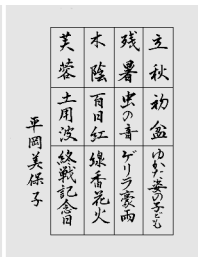 立秋
初盆
ゆかた姿の子ども
残暑
虫の音
ゲリラ豪雨
木陰
百日紅
線香花火
芙蓉
土用波
終戦記念日
平岡美保子